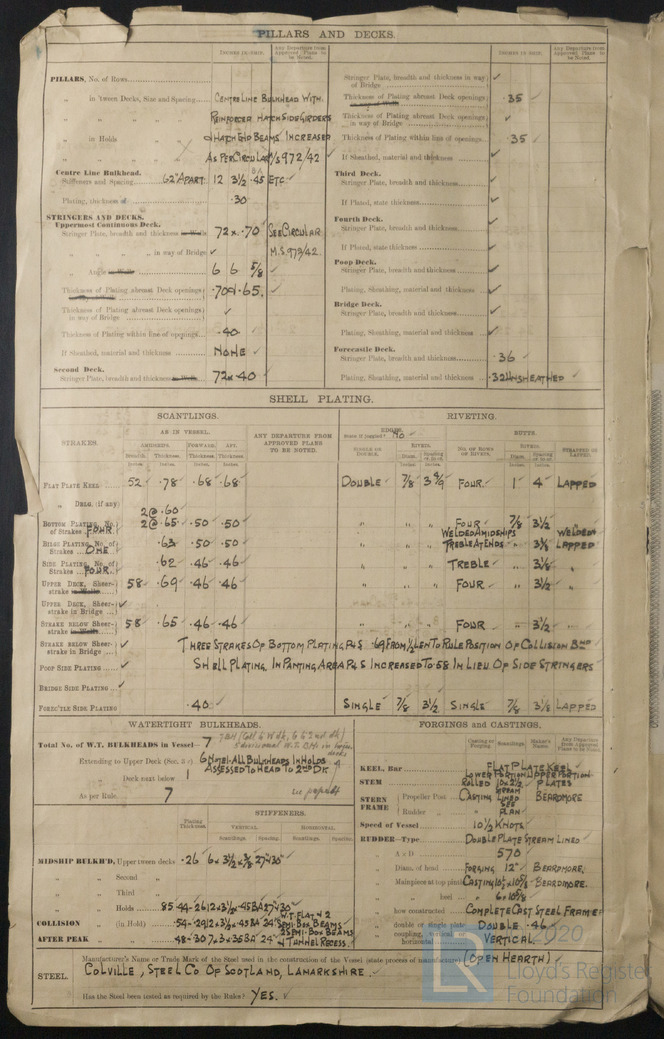 PILLARS AND DECKS.
INCHES IN SHIP.
Any Departure from Approved Plans to be Noted.
INCHES IN SHIP.
Any Departure from Approved Plans to be Noted.
PILLARS, No. of Rows
„ in 'tween Decks, Size and Spacing CENTRE LINE BULKHEAD WITH
REINFORCED HATCH SIDE GIRDERS
„ in Holds & HATCH END BEAMS INCREASED
AS PER CIRCULAR M/S 972/42
Centre Line Bulkhead.
Stiffeners and Spacing 62" APART 12 3½ .45 ETC
Plating, thickness of .30
STRINGERS AND DECKS.
Uppermost Continuous Deck.
Stringer Plate, breadth and thickness 72 x .70 SEE CIRCULAR
„ „ „ in way of Bridge ✓ M.S. 972/42.
„ Angle 6 6 5/8
Thickness of Plating abreast Deck openings .70 & .65.
Thickness of Plating abreast Deck openings in way of Bridge ✓
Thickness of Plating within line of openings .40
If Sheathed, material and thickness NONE
Second Deck.
Stringer Plate, breadth and thickness 72 x .40
Stringer Plate, breadth and thickness in way of Bridge ✓
Thickness of Plating abreast Deck openings .35
Thickness of Plating abreast Deck openings in way of Bridge ✓
Thickness of Plating within line of openings .35
If Sheathed, material and thickness ✓
Third Deck.
Stringer Plate, breadth and thickness ✓
If Plated, state thickness ✓
Fourth Deck.
Stringer Plate, breadth and thickness ✓
If Plated, state thickness ✓
Poop Deck.
Stringer Plate, breadth and thickness ✓
Plating, Sheathing, material and thickness ✓
Bridge Deck.
Stringer Plate, breadth and thickness ✓
Plating, Sheathing, material and thickness ✓
Forecastle Deck.
Stringer Plate, breadth and thickness .36
Plating, Sheathing, material and thickness .32 UNSHEATHED
SHELL PLATING.
SCANTLINGS.
RIVETING.
STRAKES.
AS IN VESSEL.
AMIDSHIPS. FORWARD. AFT.
Breadth. Thickness. Thickness. Thickness.
ANY DEPARTURE FROM APPROVED PLANS TO BE NOTED.
EDGES.
State if joggled? NO
SINGLE OR DOUBLE.
RIVETS.
Diam. Spacing cr. to cr.
BUTTS.
NO. OF ROWS OF RIVETS.
RIVETS.
Diam. Spacing cr. to cr.
STRAPPED OR LAPPED.
FLAT PLATE KEEL 52 .78 .68 .68 DOUBLE 7/8 FOUR 1 4 LAPPED
„ DBLG. (if any)
2 @ .60
BOTTOM PLATING, No. of Strakes FOUR 2 @ .65 .50 .50 „ „ „ FOUR 7/8 3½
WELDED AMIDSHIPS WELDED
BILGE PLATING, No. of Strakes ONE .63 .50 .50 „ „ „ TREBLE AT ENDS LAPPED
SIDE PLATING, No. of Strakes FOUR .62 .46 .46 „ „ „ TREBLE „ 3⅛ „
UPPER DECK, Sheer-strake 58 .69 .46 .46 „ „ „ FOUR „ 3½ „
UPPER DECK, Sheer-strake in Bridge ✓
STRAKE BELOW SHEER-strake 58 .65 .46 .46 „ „ „ FOUR „ 3½ „
STRAKE BELOW SHEER-strake in Bridge ✓ THREE STRAKES OF BOTTOM PLATING P&S .69 FROM ½ LEN TO RULE POSITION OF COLLISION BHD
POOP SIDE PLATING ✓ SHELL PLATING IN PANTING AREA P&S INCREASED TO .58 IN LIEU OF SIDE STRINGERS
BRIDGE SIDE PLATING ✓
FOREC'TLE SIDE PLATING .40 SINGLE 7/8 3½ SINGLE 7/8 3⅛ LAPPED
WATERTIGHT BULKHEADS.
Total No. of W.T. BULKHEADS in Vessel— 7
Extending to Upper Deck (Sec. 3 c) ALL BULKHEADS IN HOLDS
ASSESSED TO HEAD TO 2ND DK
„ Deck next below 1
As per Rule 7
Plating Thickness.
STIFFENERS.
VERTICAL. HORIZONTAL.
Scantlings. Spacing. Scantlings. Spacing.
MIDSHIP BULKH'D, Upper tween decks .26 6 x 3½ x 3/8 27" 30"
„ Second „
„ Third „
„ Holds
COLLISION „ (in Hold)
AFTER PEAK „
W.T. FLAT & 2
SEMI BOX BEAMS
2 SEMI BOX BEAMS
& TUNNEL RECESS.
FORGINGS and CASTINGS.
Casting or Forging. Scantlings. Maker's Name. Any Departure from Approved Plans to be Noted.
KEEL, Bar FLAT PLATE KEEL
LOWER PORTION UPPER PORTION
STEM ROLLED 10 x 2½ PLATES
STERN FRAME
Propeller Post CASTING STREAM LINED BEARDMORE
Rudder „ SEE PLAN
Speed of Vessel 10½ KNOTS
RUDDER—Type DOUBLE PLATE STREAM LINED
„ A × D 570
„ Diam. of head FORGING 12" BEARDMORE.
„ Mainpiece at top pintle CASTING BEARDMORE.
„ heel
„ how constructed COMPLETE CAST STEEL FRAME
„ double or single plate DOUBLE .46
„ coupling, vertical or horizontal VERTICAL
STEEL.
Manufacturer's Name or Trade Mark of the Steel used in the construction of the Vessel (state process of manufacture) (OPEN HEARTH)
COLVILLE, STEEL CO. OF SCOTLAND, LANARKSHIRE.
Has the Steel been tested as required by the Rules? YES.
LR
2020
Lloyd's Register
Foundation